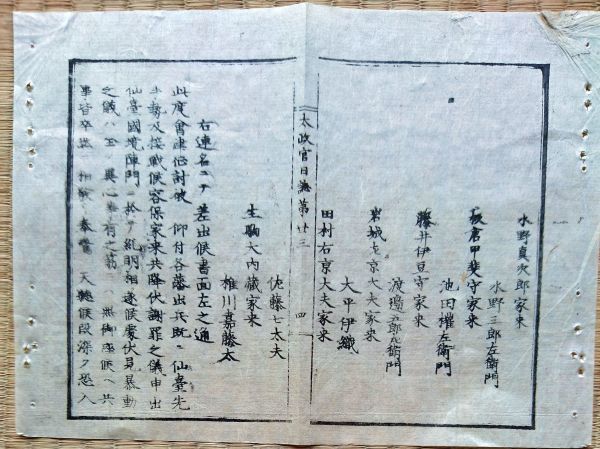 水野真次郎家来
水野三郎左衛門
板倉甲斐守家来
池田權左衛門
藤井伊豆守家来
渡邊五郎左衛門
岩城左京大夫家来
大平伊織
田村右京大夫家来
太政官日誌第廿三
四
佐藤七太夫
生駒大内藏家来
椎川嘉藤太
右連名ニテ差出候書面左之通
此度會津御討被 仰付各藩出兵既ニ仙臺先
手勢及接戰候容保家来共降伏謝罪之儀申出
仙臺國境陣門ニ於テ糺明相遂候處伏見暴動
之儀ハ全ク異心 有之 ハ無御座候ヘ共
事皆卒 相 奉驚 天聽候段深ク恐入